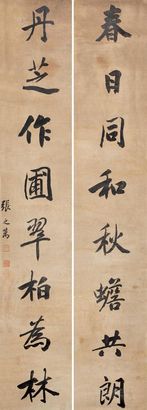 春日同和秋蟾共朗
丹芝作圃翠柏為林
張之萬